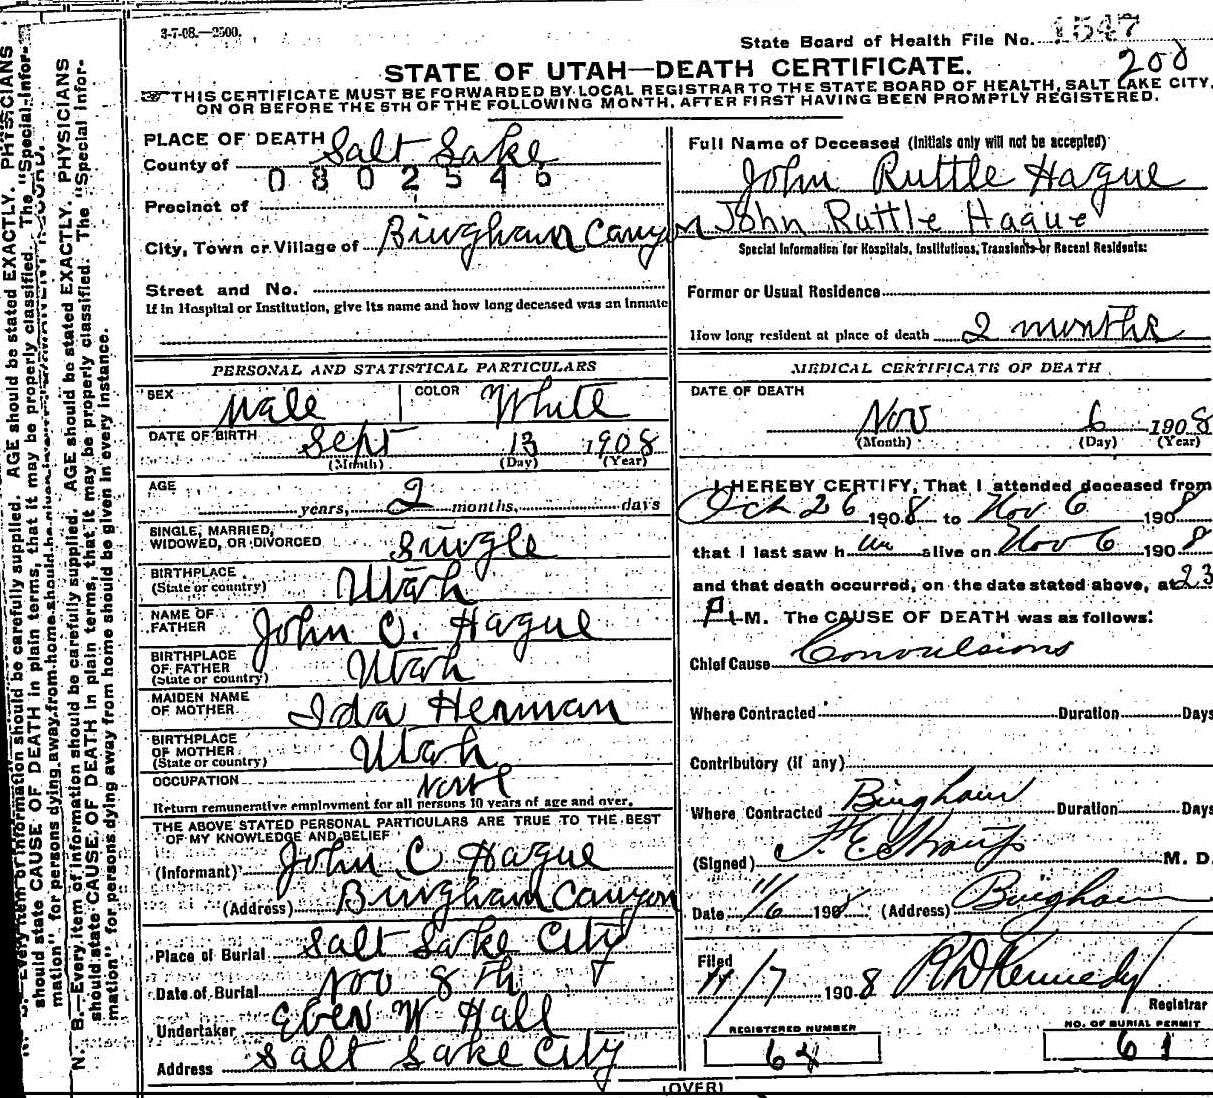 3-7-08.—2500.
State Board of Health File No. 1547
208
STATE OF UTAH—DEATH CERTIFICATE.
THIS CERTIFICATE MUST BE FORWARDED BY LOCAL REGISTRAR TO THE STATE BOARD OF HEALTH, SALT LAKE CITY,
ON OR BEFORE THE 5TH OF THE FOLLOWING MONTH, AFTER FIRST HAVING BEEN PROMPTLY REGISTERED.
PLACE OF DEATH
County of Salt Lake
0802546
Precinct of
City, Town or Village of Bingham Canyon
Street and No.
If in Hospital or Institution, give its name and how long deceased was an inmate
PERSONAL AND STATISTICAL PARTICULARS
SEX Male COLOR White
DATE OF BIRTH Sept 13 1908
(Month) (Day) (Year)
AGE
years, 2 months, days
SINGLE, MARRIED,
WIDOWED, OR DIVORCED Single
BIRTHPLACE
(State or country) Utah
NAME OF
FATHER John C. Hague
BIRTHPLACE
OF FATHER
(State or country) Utah
MAIDEN NAME
OF MOTHER Ida Herman
BIRTHPLACE
OF MOTHER
(State or country) Utah
OCCUPATION None
Return remunerative employment for all persons 10 years of age and over.
THE ABOVE STATED PERSONAL PARTICULARS ARE TRUE TO THE BEST
OF MY KNOWLEDGE AND BELIEF
(Informant) John C Hague
(Address) Bingham Canyon
Place of Burial Salt Lake City
Date of Burial Nov 8 Th
Undertaker Eber W Hall
Address Salt Lake City
Full Name of Deceased (Initials only will not be accepted)
John Ruttle Hague
John Ruttle Hague
Special Information for Hospitals, Institutions, Transients or Recent Residents:
Former or Usual Residence
How long resident at place of death 2 months
MEDICAL CERTIFICATE OF DEATH
DATE OF DEATH
Nov 6 1908
(Month) (Day) (Year)
I HEREBY CERTIFY, That I attended deceased from
Oct 26 1908 to Nov 6 1908
that I last saw h im alive on Nov 6 1908
and that death occurred, on the date stated above, at 23
P M. The CAUSE OF DEATH was as follows:
Chief Cause Convulsions
Where Contracted Duration Days
Contributory (if any)
Where Contracted Bingham Duration Days
(Signed) F. E. Straup M. D.
Date 11/6 1908 (Address) Bingham
Filed
11/7 1908 R D Kennedy
Registrar
REGISTERED NUMBER NO. OF BURIAL PERMIT
61
(OVER)
N. B.—Every item of information should be carefully supplied. AGE should be stated EXACTLY. PHYSICIANS
should state CAUSE OF DEATH in plain terms, that it may be properly classified. The "Special Infor-
mation" for persons dying away from home should be given in every instance.